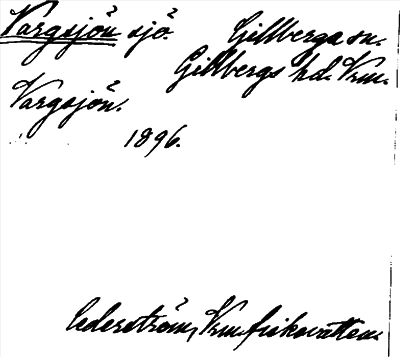 Vargsjön sjö. Gillberga sn.
Gillbergs hd. Vrm.
Vargsjön.
1896.
Cederström, Vrm fiskevatten.